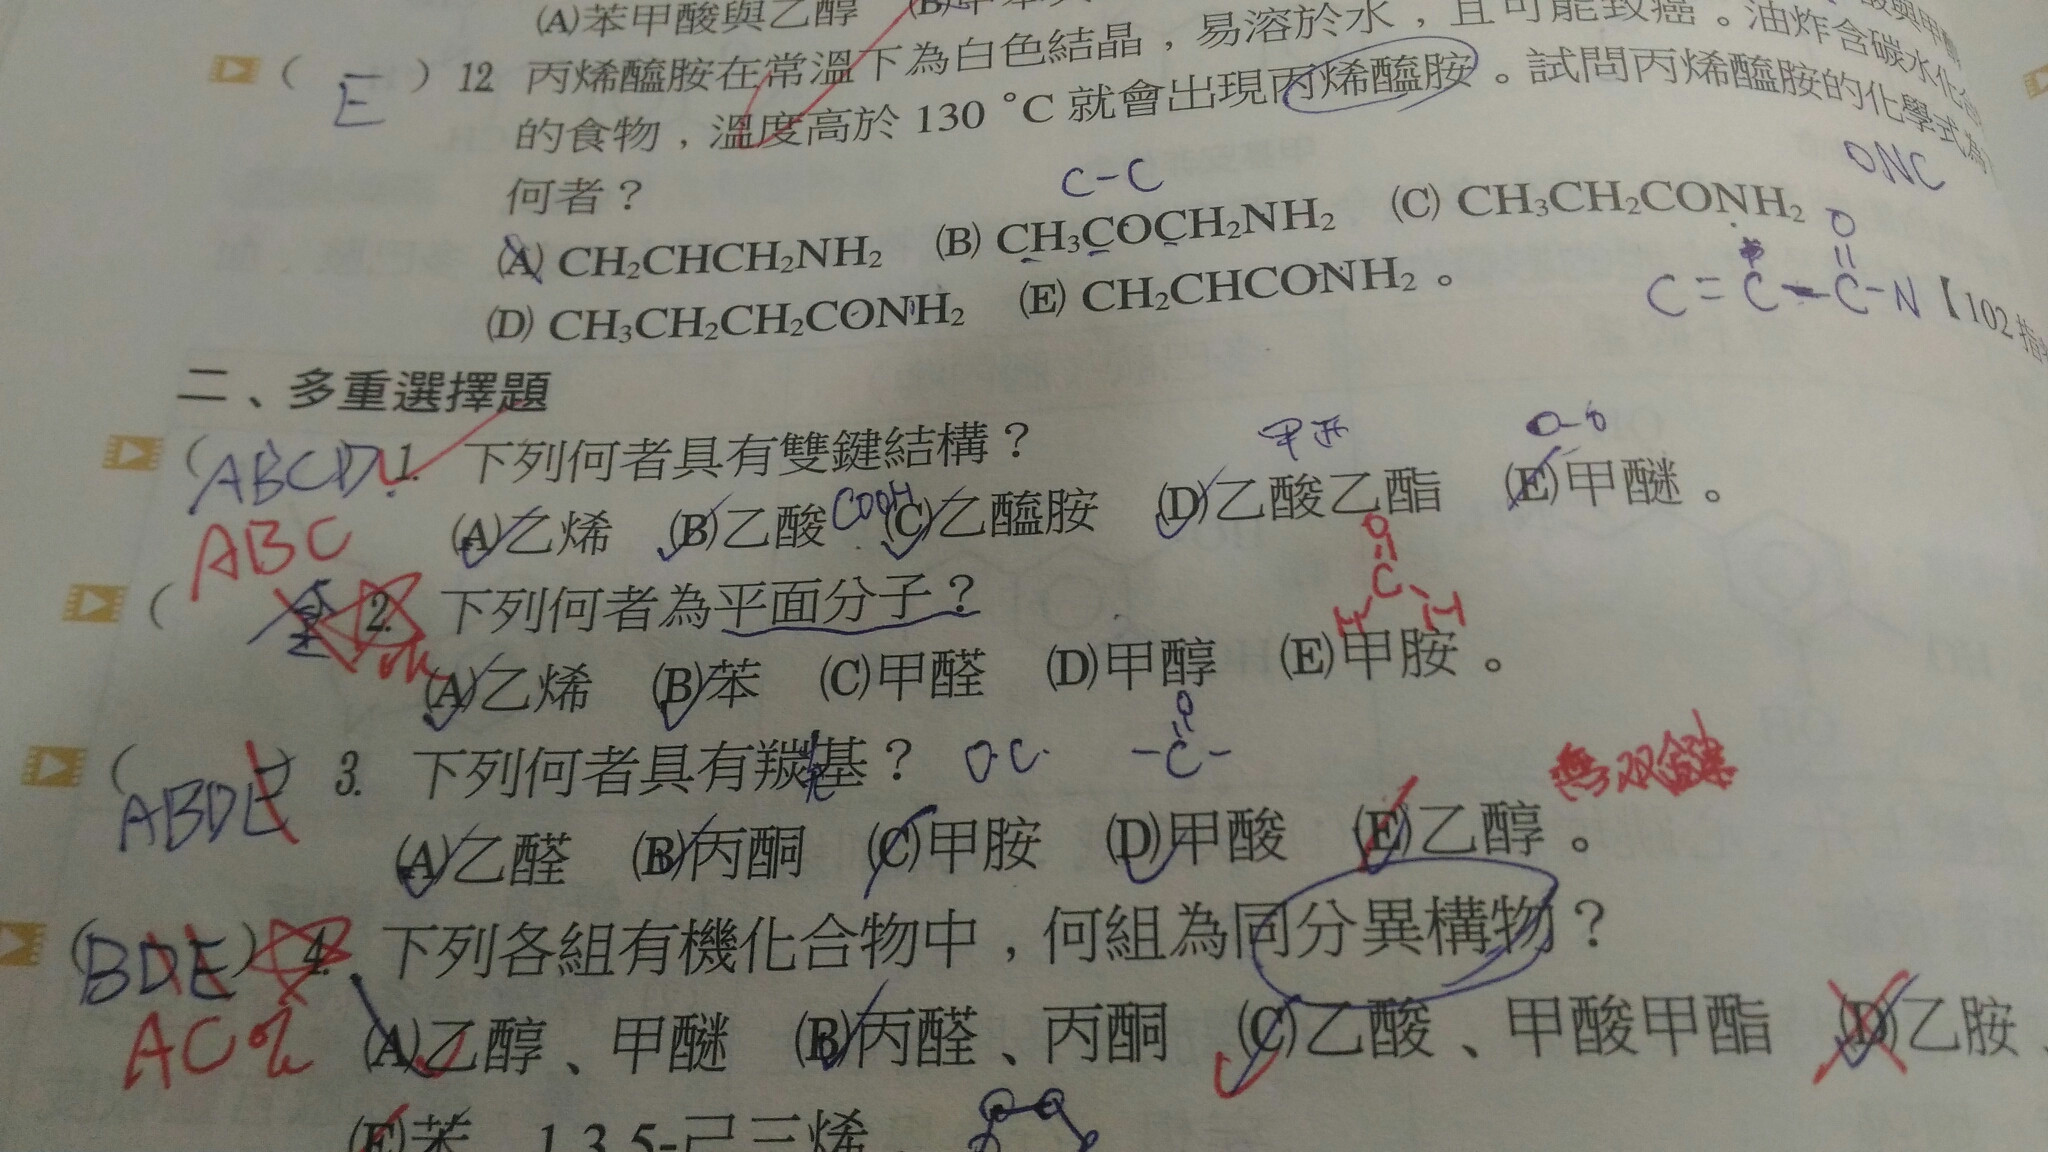 (A)苯甲酸與乙醇
( E ) 12 丙烯醯胺在常溫下為白色結晶，易溶於水，且可能致癌。油炸含碳水化合
的食物，溫度高於 130 °C 就會出現丙烯醯胺。試問丙烯醯胺的化學式為
何者？
C-C
ONC
(A) CH2CHCH2NH2 (B) CH3COCH2NH2 (C) CH3CH2CONH2
(D) CH3CH2CH2CONH2 (E) CH2CHCONH2。
O
C=C-C-N
【102 指
二、多重選擇題
(ABCD 1. 下列何者具有雙鍵結構？
(A)乙烯 (B)乙酸 COOH (C)乙醯胺 (D)乙酸乙酯 (E)甲醚。
ABC
( 全 2. 下列何者為平面分子？
O
C
H H
(A)乙烯 (B)苯 (C)甲醛 (D)甲醇 (E)甲胺。
(ABDE) 3. 下列何者具有羰基？ OC
O
-C-
無双鍵
(A)乙醛 (B)丙酮 (C)甲胺 (D)甲酸 (E)乙醇。
(BDE) 4. 下列各組有機化合物中，何組為同分異構物？
ABC
(A)乙醇、甲醚 (B)丙醛、丙酮 (C)乙酸、甲酸甲酯 (D)乙胺、
(E)苯、1,3,5-己三烯。